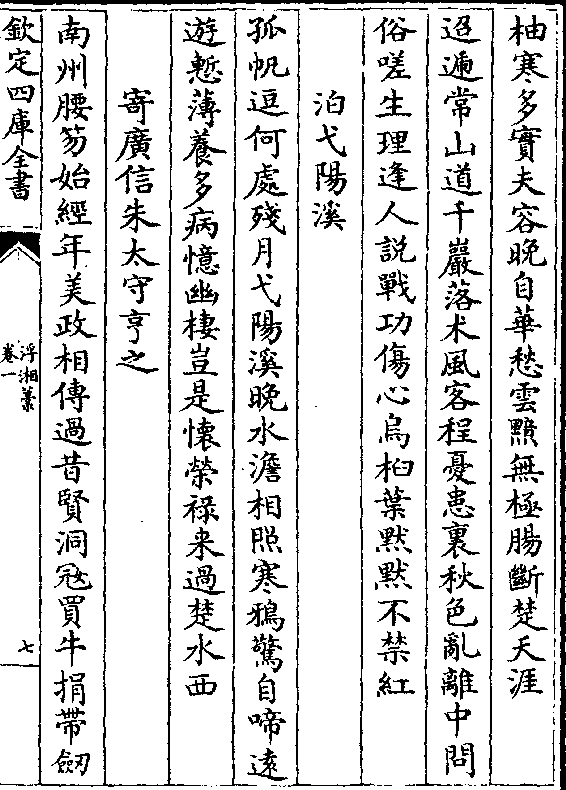 柚寒多實夫容晚自華愁雲黯無極腸斷楚天涯
迢遞常山道千巖落木風客程憂患裏秋色亂離中問
俗嗟生理逢人説戰功傷心烏桕葉黙黙不禁紅
泊弋陽溪
孤帆逗何處殘月弋陽溪晚水澹相照寒鴉驚自啼逺
遊慙薄養多病憶幽棲豈是懷榮禄来過楚水西
寄廣信朱太守亨之
南州腰笏始經年美政相傳過昔賢洞冦買牛捐帶劒
欽定四庫全書
浮湘藁
卷一
七